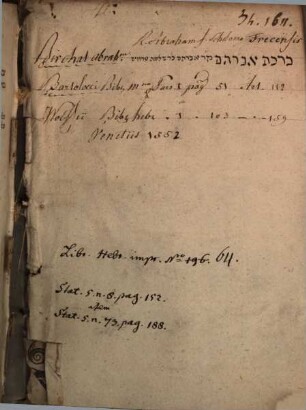 34.1611.
R. Abraham f. Schelomo Trecensis
Birchat Abrah: ברכת אברהם
Bartolocci Bibl. m. Pars 1 pag 51 Art. 112
Wolfii Bibl. hebr. 1. 103 159
Venetiis 1552
Libr. Hebr. impr. No 196. 64.
Stat. 5. n. 8. pag. 152.
item
Stat. 5. n. 73. pag. 188.